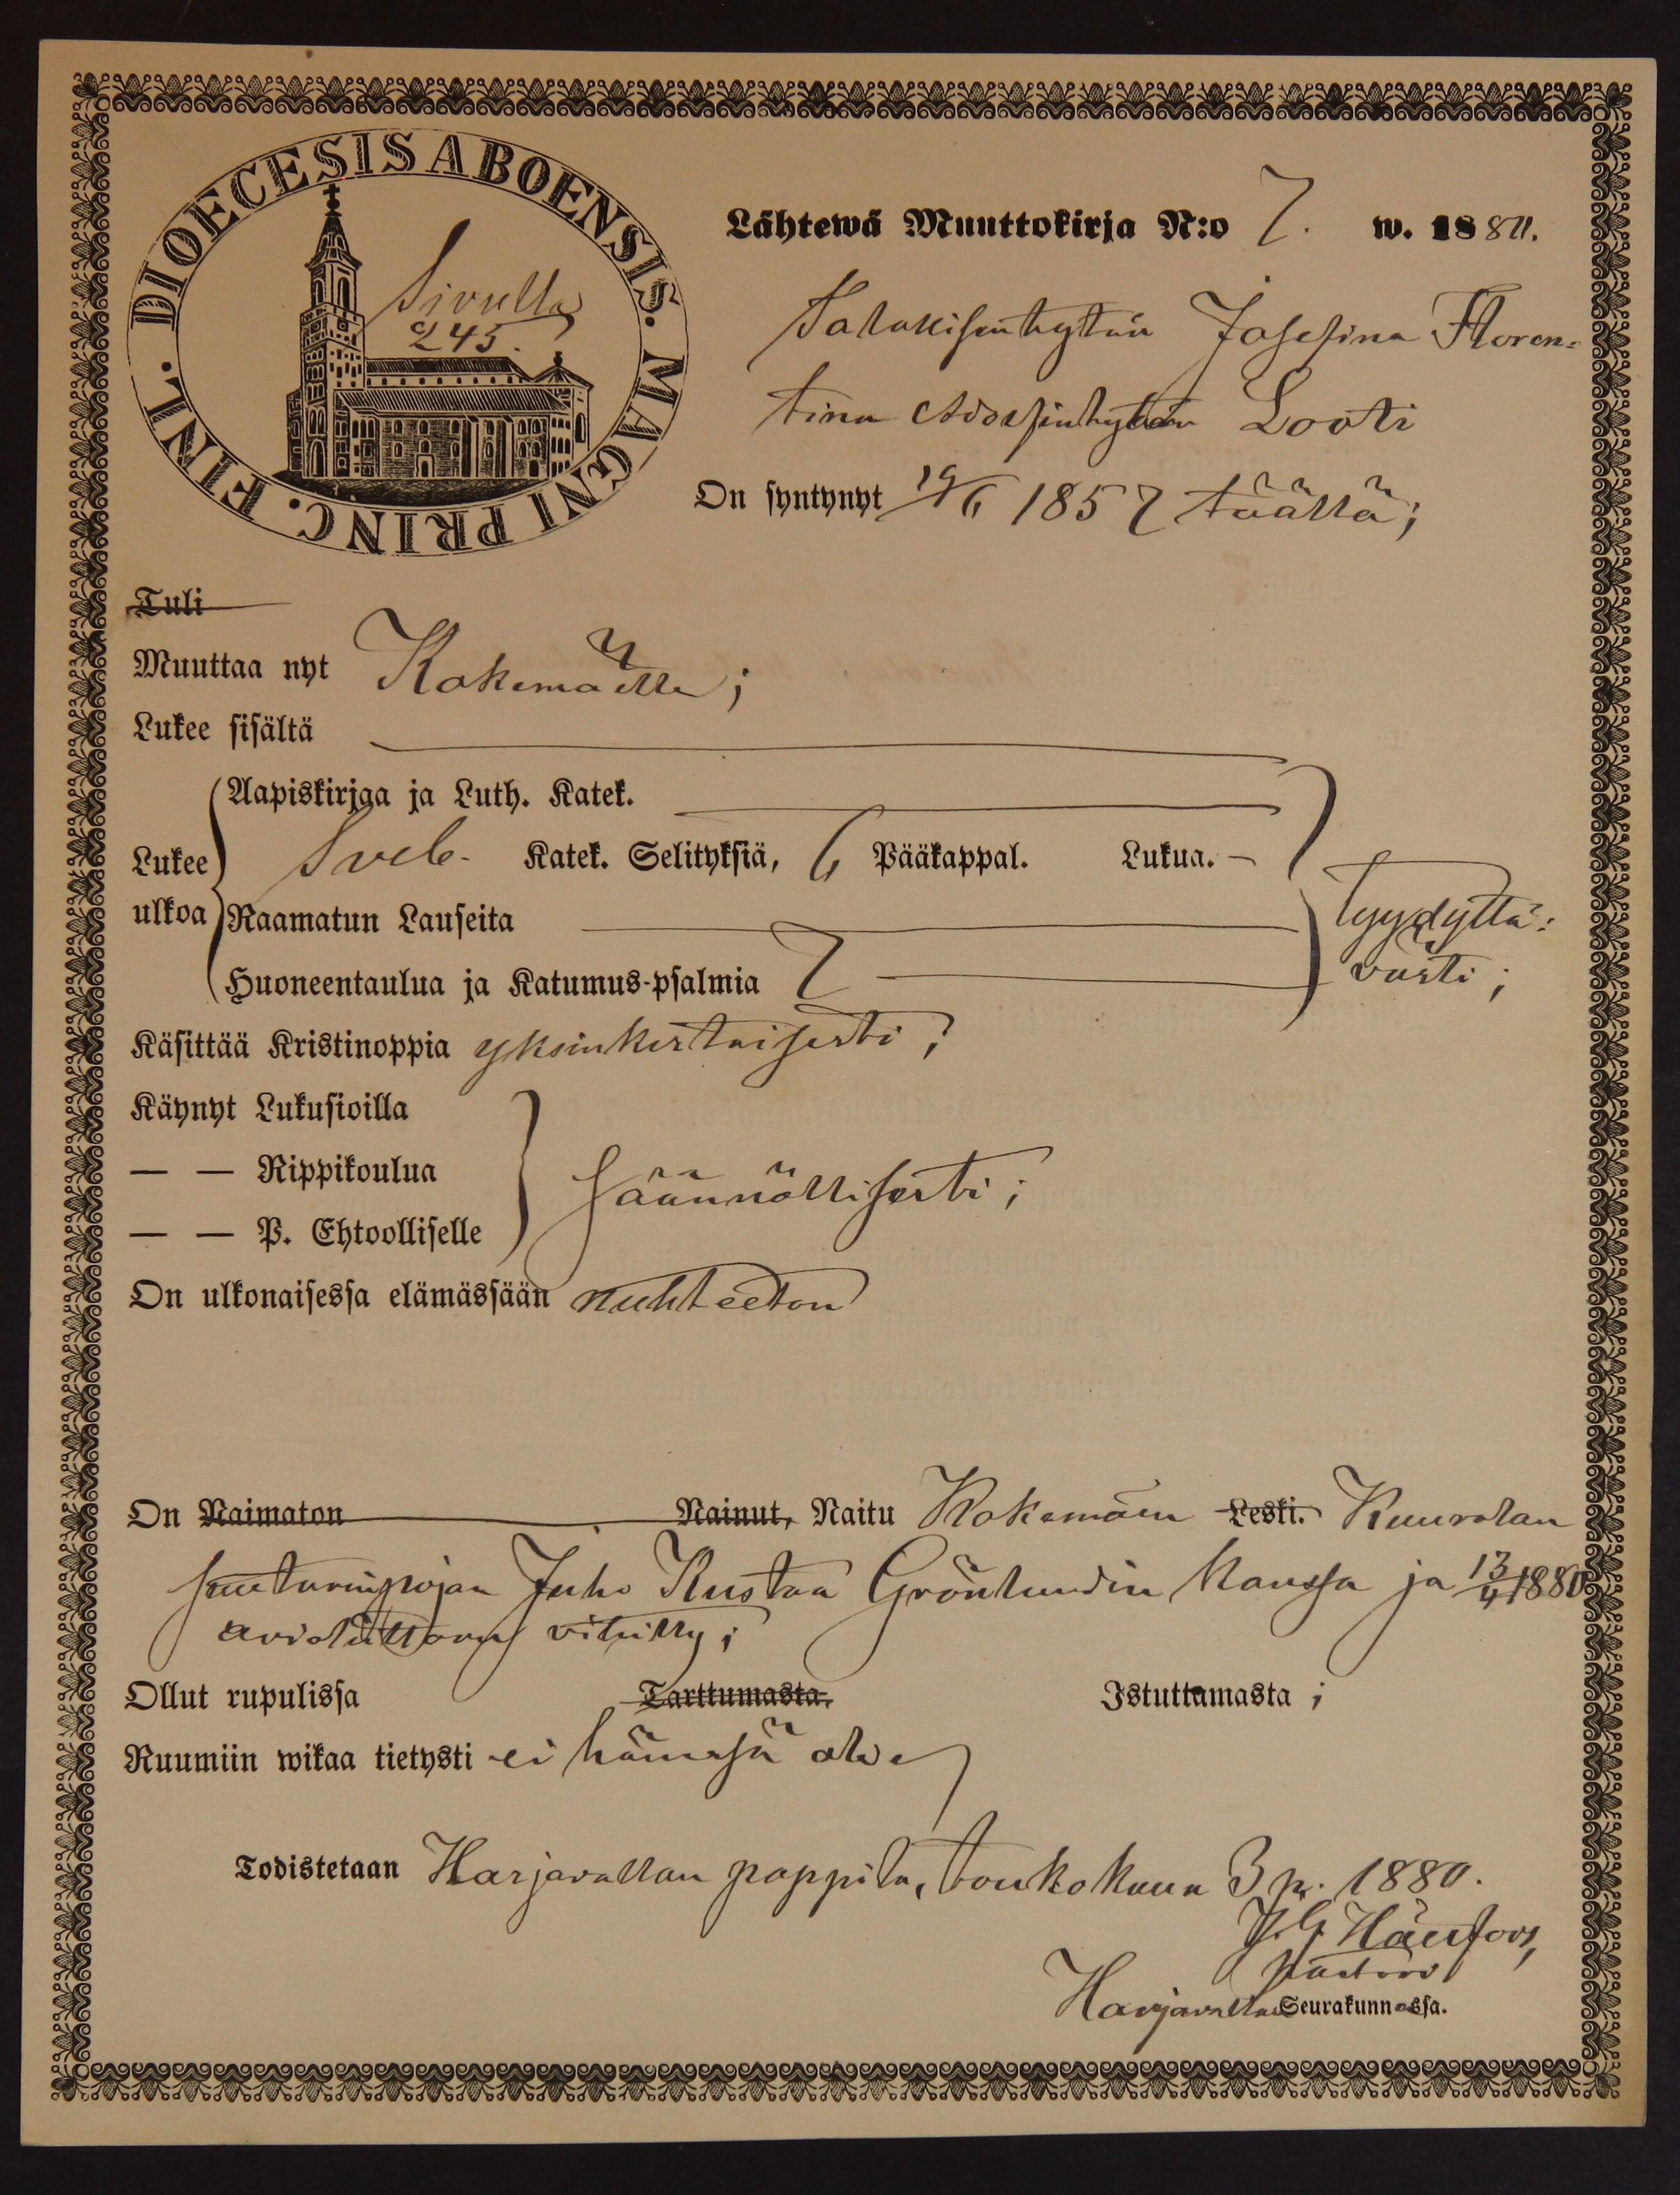 DIOECESIS ABOENSIS. MAGNI PRINC. FINL.
Sivulla
245.
Lähtewä Muuttokirja N:o 7. w. 1880.
Talollisentytär Josefina Floren=
tina Adolfintytär Looti
On syntynyt 19/6 1857 täällä;
Tuli
Muuttaa nyt Kokemäelle;
Lukee sisältä
Aapiskirjaa ja Luth. Katek.
Lukee ulkoa
Sveb. Katek. Selityksiä, 6 Pääkappal. Lukua. –
Raamatun Lauseita
Huoneentaulua ja Katumus-psalmia 7
tyydyttä=
västi;
Käsittää Kristinoppia yksinkertaisesti;
Käynyt Lukusioilla
— — Rippikoulua
säännöllisesti;
— — P. Ehtoolliselle
On ulkonaisessa elämässään nuhteeton
On Naimaton Nainut, Naitu Kokemäen Leski. Kuurolan
suutarinpojan Juho Kustaa Grönlundin kanssa ja 13/4 1880
avioliittoon vihitty;
Ollut rupulissa Tarttumasta, Istuttamasta;
Ruumiin wikaa tietysti ei hänessä ole
Todistetaan Harjavallan pappila, toukokuun 3 p. 1880.
pastori
Harjavallan Seurakunnassa.